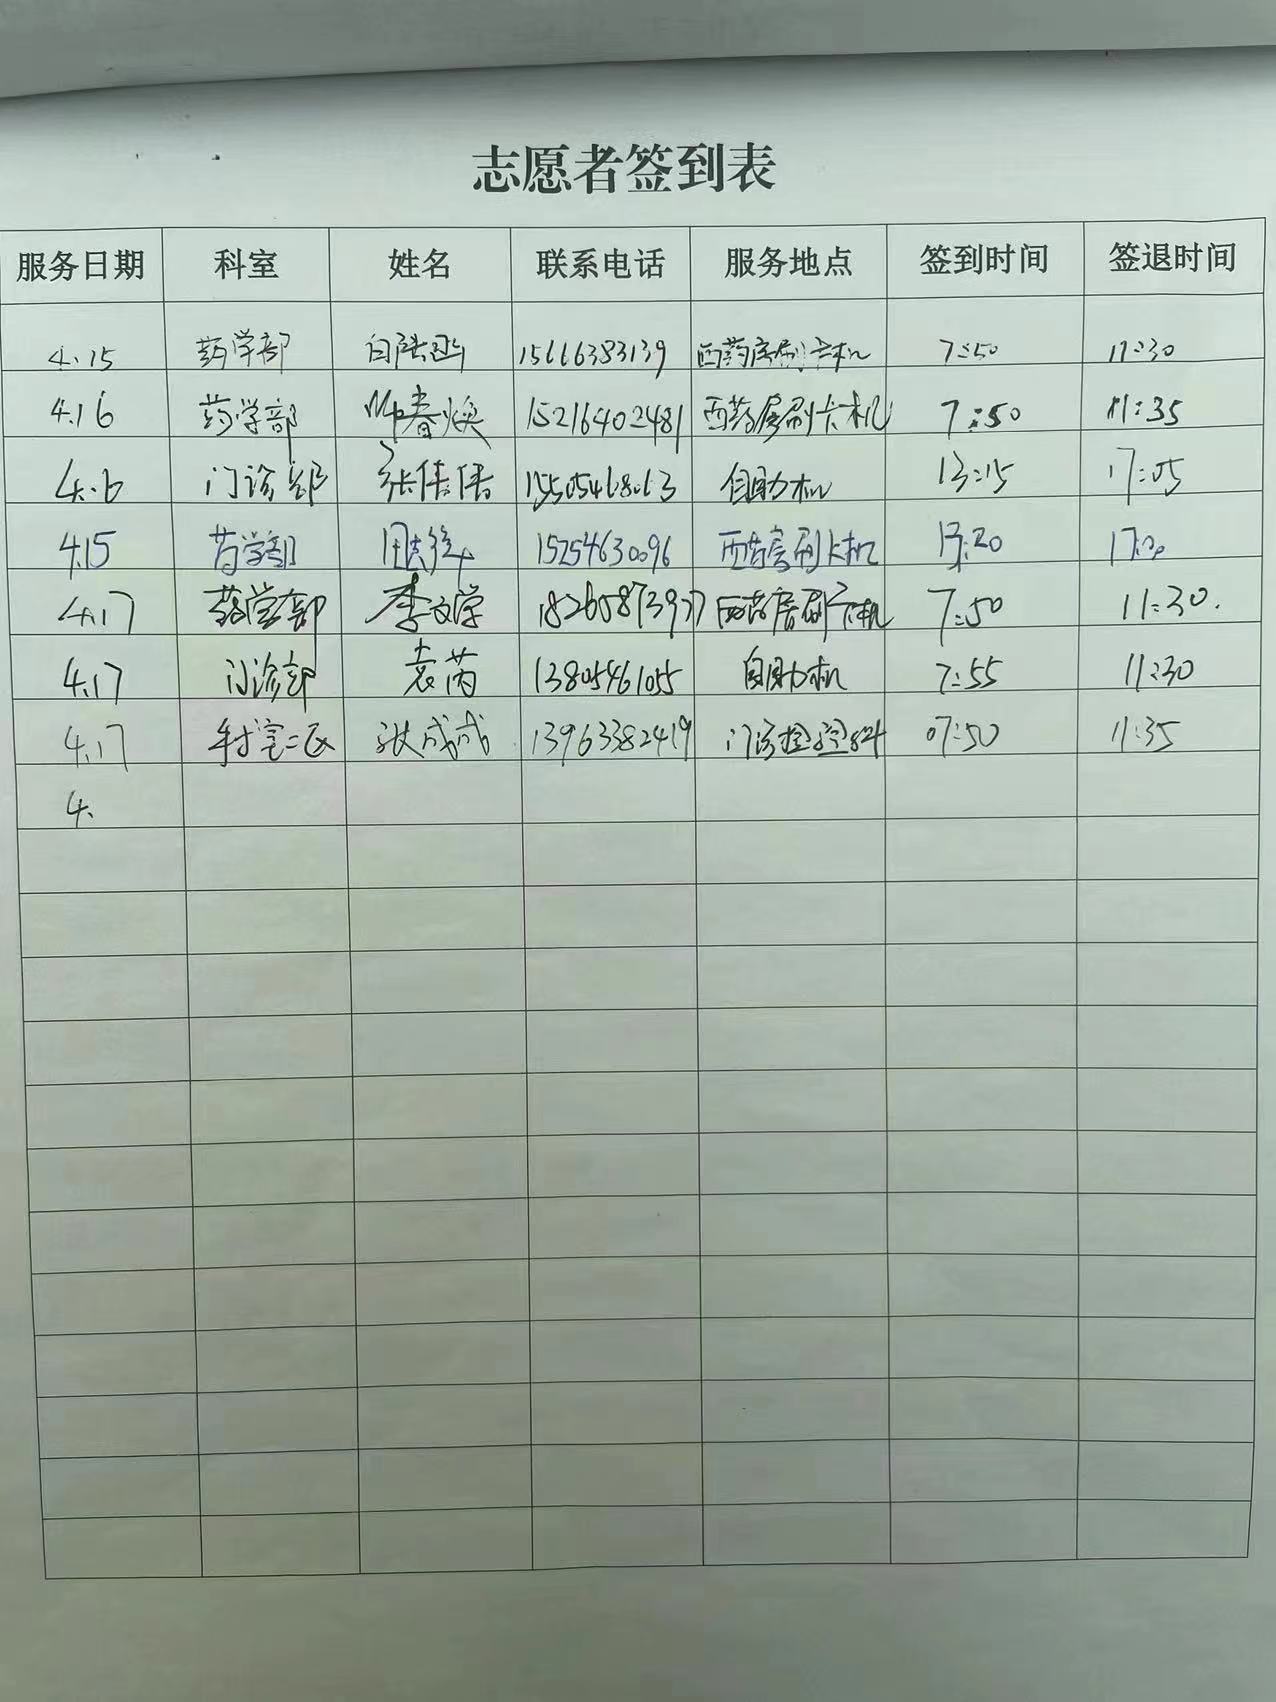 志愿者签到表
服务日期 科室 姓名 联系电话 服务地点 签到时间 签退时间
4.15 药学部 15666383139 西药房刷卡机 7:50 11:30
4.16 药学部 帅春焕 15216402481 西药房刷卡机 7:50 11:35
4.16 门诊部 张倩倩 15505468063 自助机 13:15 17:05
4.15 药学部 15254630096 西药房刷卡机 13:20 17:20
4.17 药学部 李文学 18265873937 西药房刷卡机 7:50 11:30.
4.17 门诊部 袁芮 13805461055 自助机 7:55 11:30
4.17 二区 张成成 13963382419 07:50 11:35
4.